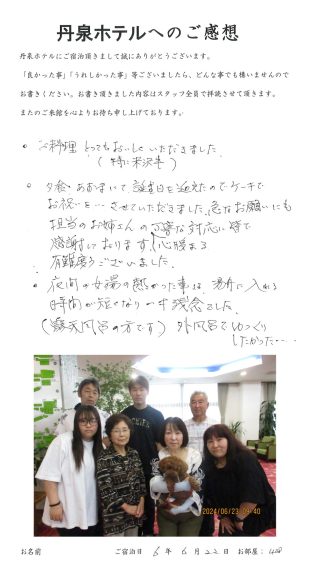 丹泉ホテルへのご感想
丹泉ホテルにご宿泊頂きまして誠にありがとうございます。
「良かった事」「うれしかった事」等ございましたら、どんな事でも構いませんので
お書きください。お書き頂きました内容はスタッフ全員で拝読させて頂きます。
またのご来館を心よりお待ち申し上げております。
• お料理 とってもおいしくいただきました
(特に米沢牛)
• 夕食 で誕生日を迎えたのでケーキで
お祝いを…させていただきました。急なお願いにも
担当のお姉さんの丁寧な対応に皆で
感謝しております。心暖まる
有難うございました。
• 夜間の女湯の熱かった事は、湯舟に入れる
時間が短くなり 残念でした。
(露天風呂の方です) 外風呂でゆっくり
したかった…
2024/06/23 09:40
お名前 ご宿泊日 6 年 6 月 22 日 お部屋: